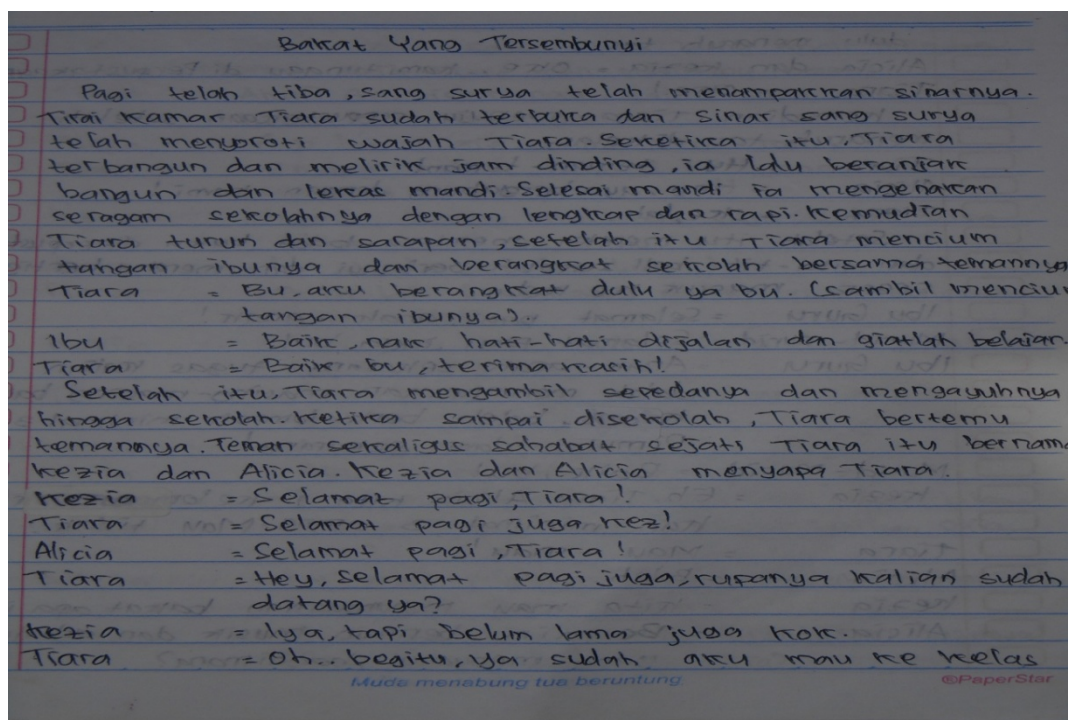 Bakat Yang Tersembunyi
Pagi telah tiba, sang surya telah menampakkan sinarnya.
Tirai kamar Tiara sudah terbuka dan sinar sang surya
telah menyoroti wajah Tiara. Seketika itu, Tiara
terbangun dan melirik jam dinding, ia lalu beranjak
bangun dan lekas mandi. Selesai mandi ia mengenakan
seragam sekolahnya dengan lengkap dan rapi. Kemudian
Tiara turun dan sarapan, setelah itu Tiara mencium
tangan ibunya dan berangkat sekolah bersama temannya
Tiara = Bu, aku berangkat dulu ya bu. (sambil menciu
tangan ibunya).
Ibu = Baik, nak hati-hati dijalan dan giatlah belajar.
Tiara = Baik bu, terima kasih!
Setelah itu, Tiara mengambil sepedanya dan mengayuhnya
hingga sekolah. Ketika sampai disekolah, Tiara bertemu
temannya. Teman sekaligus sahabat sejati Tiara itu bernama
Kezia dan Alicia. Kezia dan Alicia menyapa Tiara.
Kezia = Selamat pagi, Tiara!
Tiara = Selamat pagi juga kez!
Alicia = Selamat pagi, Tiara!
Tiara = Hey, selamat pagi juga, rupanya kalian sudah
datang ya?
Kezia = Iya, tapi belum lama juga kok.
Tiara = Oh.. begitu, ya sudah aku mau ke kelas
Muda menabung tua beruntung ©PaperStar